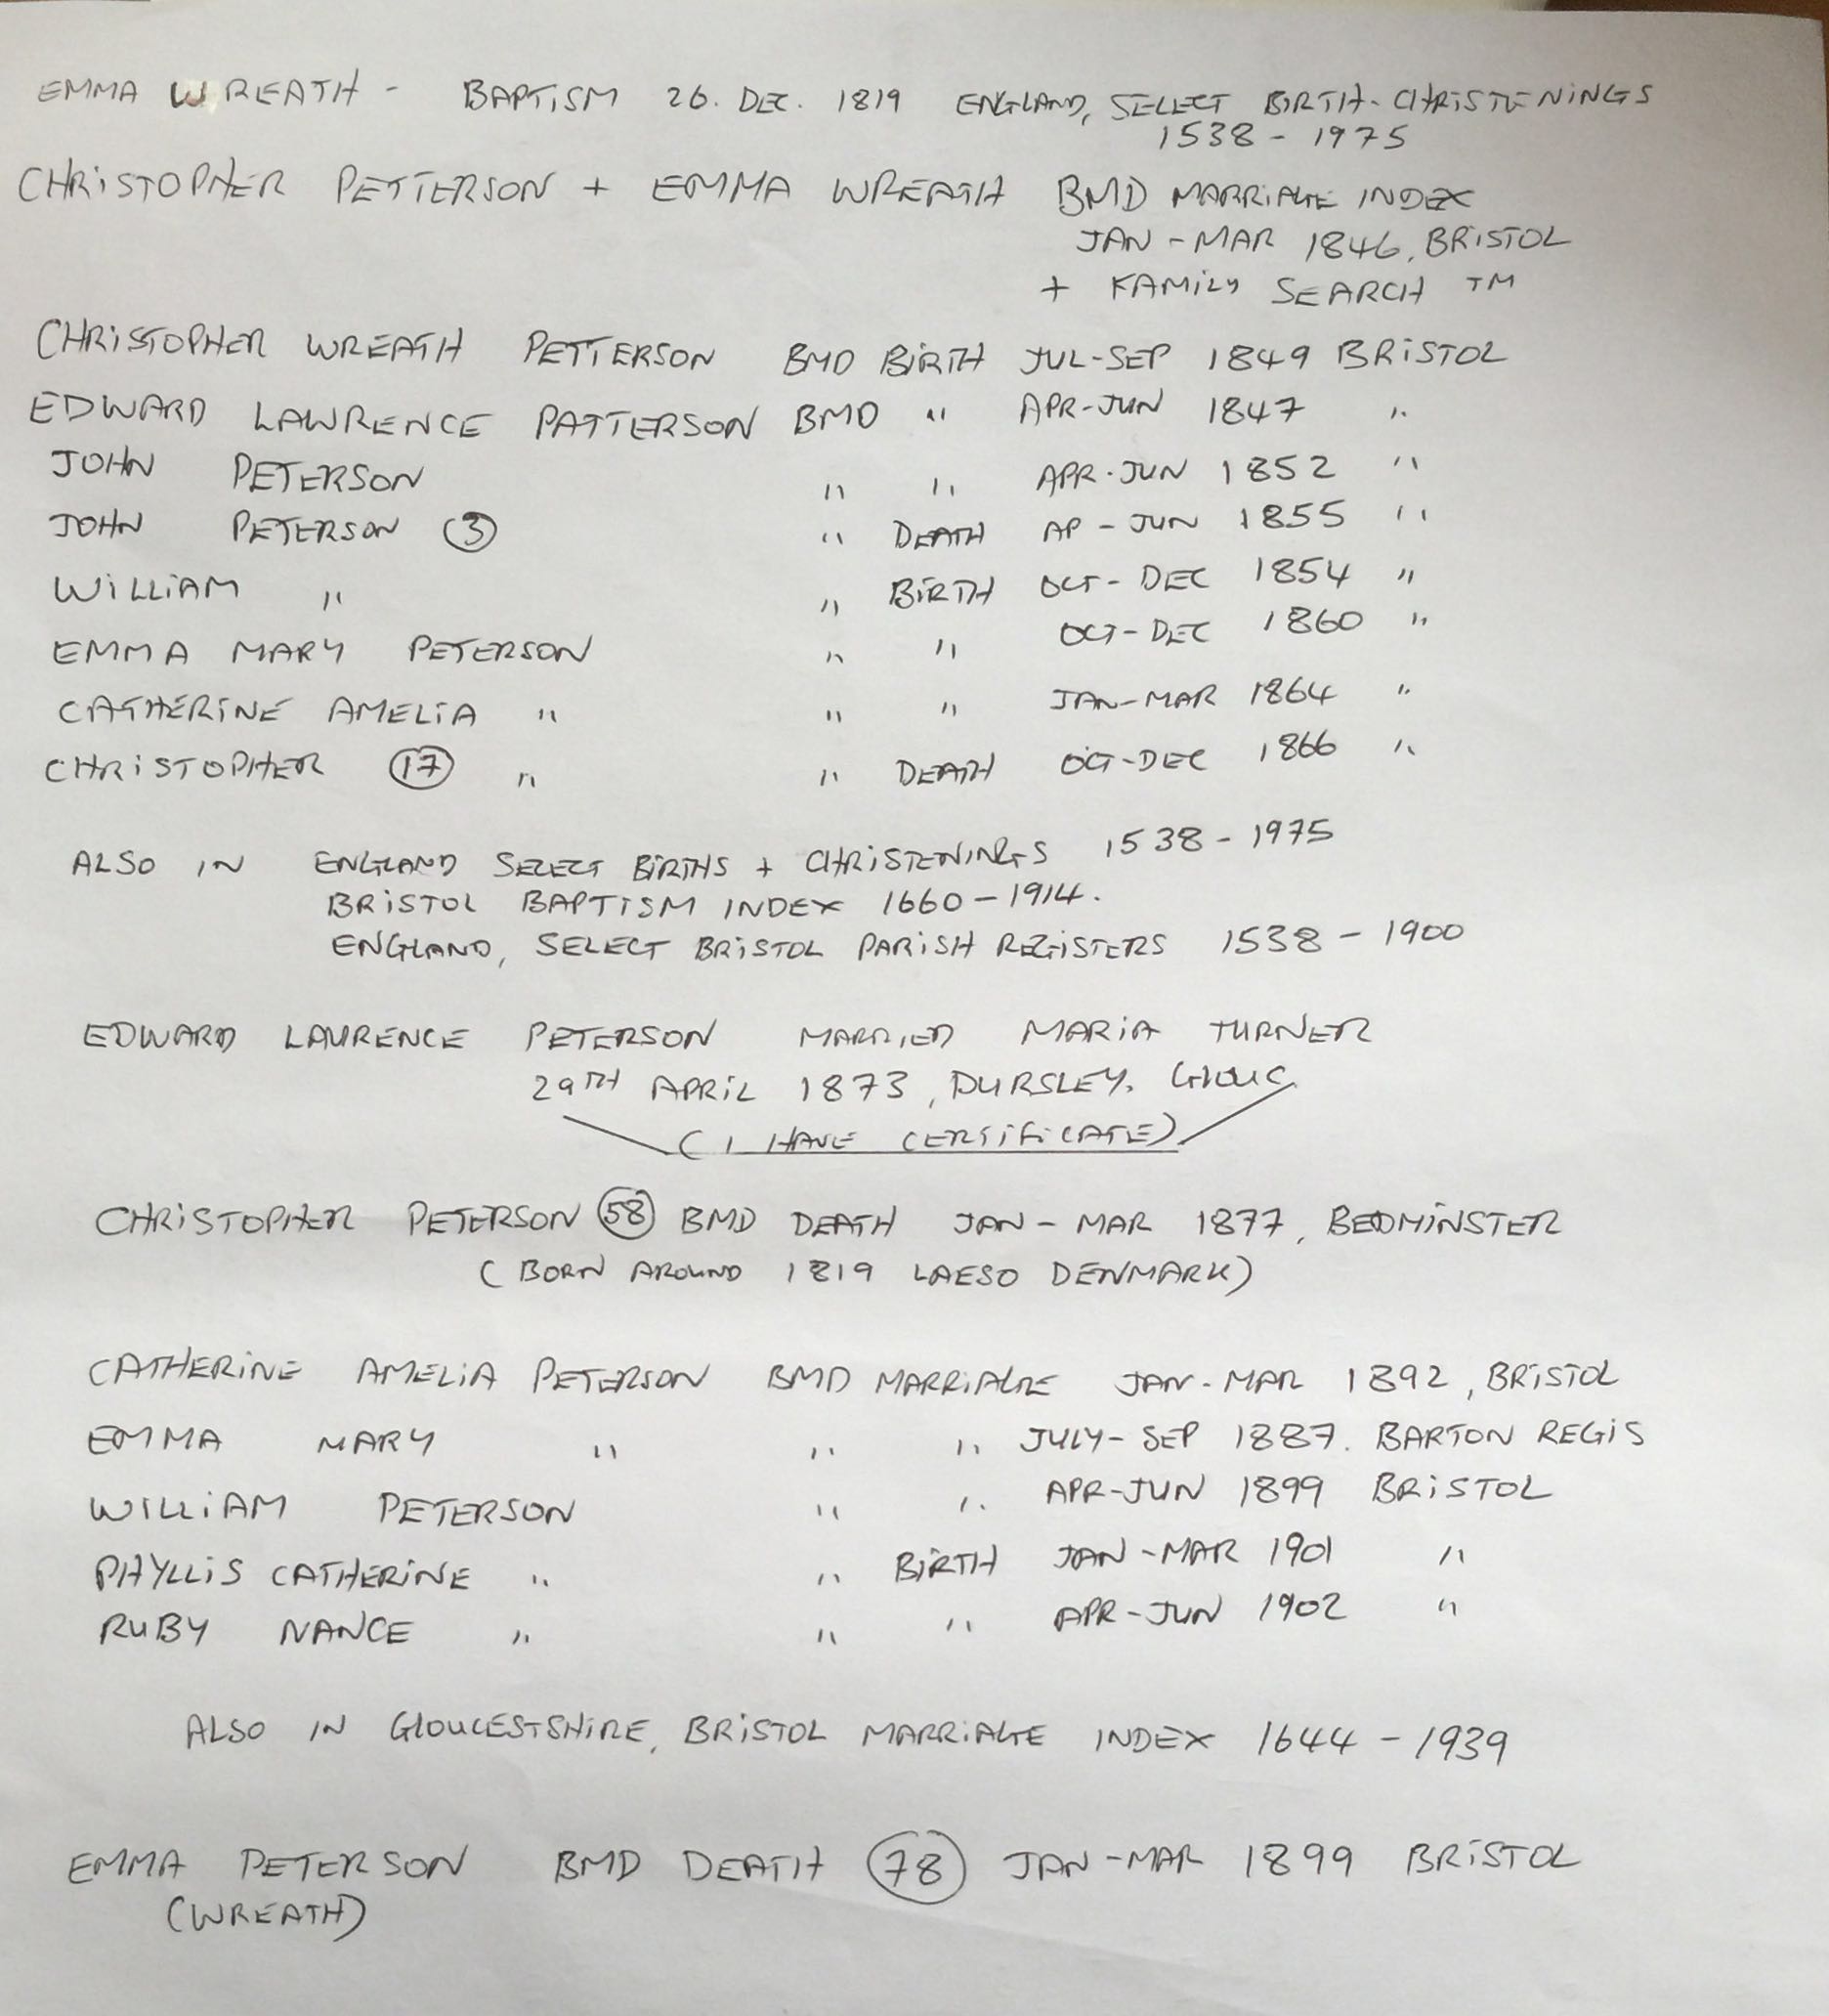 EMMA WREATH - BAPTISM 26. DEC. 1819 ENGLAND, SELECT BIRTH-CHRISTENINGS
1538 - 1975
CHRISTOPHER PETTERSON + EMMA WREATH BMD MARRIAGE INDEX
JAN - MAR 1846, BRISTOL
+ FAMILY SEARCH TM
CHRISTOPHER WREATH PETTERSON BMD BIRTH JUL-SEP 1849 BRISTOL
EDWARD LAWRENCE PATTERSON BMD " APR-JUN 1847 "
JOHN PETERSON " " APR-JUN 1852 "
JOHN PETERSON (3) " DEATH AP - JUN 1855 "
WILLIAM " " BIRTH OCT - DEC 1854 "
EMMA MARY PETERSON " " OCT-DEC 1860 "
CATHERINE AMELIA " " " JAN-MAR 1864 "
CHRISTOPHER (17) " " DEATH OCT-DEC 1866 "
ALSO IN ENGLAND SELECT BIRTHS + CHRISTENINGS 1538 - 1975
BRISTOL BAPTISM INDEX 1660 - 1914.
ENGLAND, SELECT BRISTOL PARISH REGISTERS 1538 - 1900
EDWARD LAURENCE PETERSON MARRIED MARIA TURNER
29TH APRIL 1873, DURSLEY. GLOUC
(I HAVE CERTIFICATE)
CHRISTOPHER PETERSON (58) BMD DEATH JAN - MAR 1877, BEDMINSTER
(BORN AROUND 1819 LAESO DENMARK)
CATHERINE AMELIA PETERSON BMD MARRIAGE JAN - MAR 1892, BRISTOL
EMMA MARY " " " JULY - SEP 1887. BARTON REGIS
WILLIAM PETERSON " " APR-JUN 1899 BRISTOL
PHYLLIS CATHERINE " " BIRTH JAN - MAR 1901 "
RUBY NANCE " " " APR - JUN 1902 "
ALSO IN GLOUCESTSHIRE, BRISTOL MARRIAGE INDEX 1644 - 1939
EMMA PETERSON BMD DEATH (78) JAN - MAR 1899 BRISTOL
(WREATH)